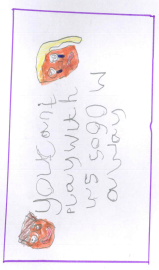 YOU Cant
PLAY WITH
US SO GO W
away